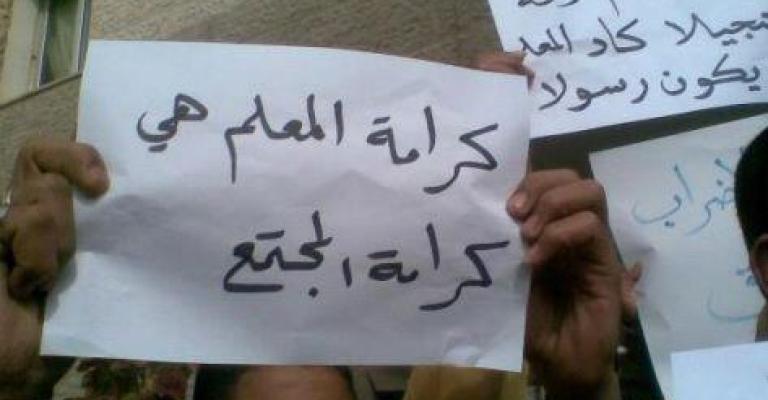 كرامة المعلم هي
كرامة المجتمع
تبجيلا كاد المعلم
يكون رسولا
ضراب